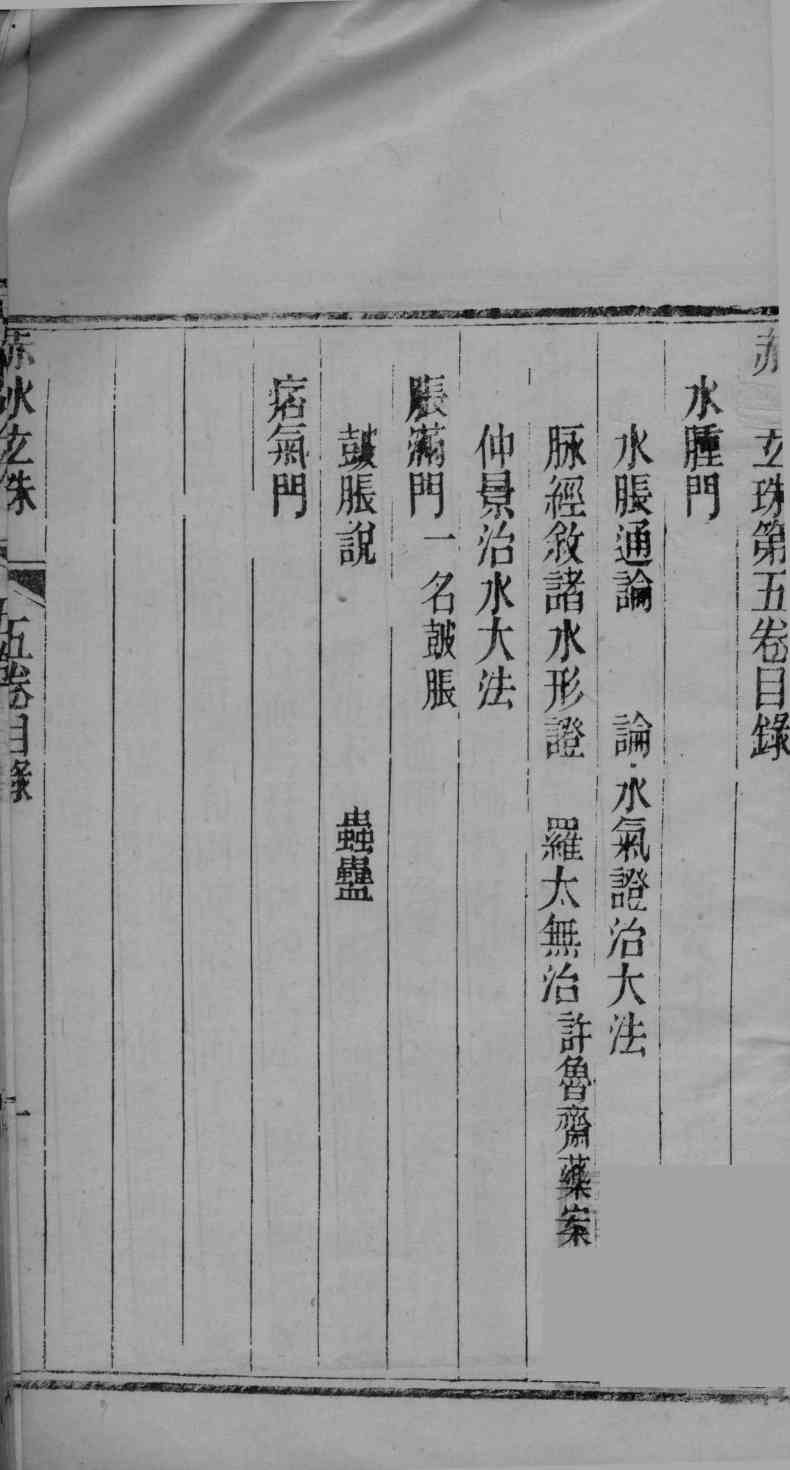 赤 玄珠第五卷目錄
水腫門
水脹通論 論水氣證治大法
脉經敘諸水形證 羅太無治許魯齋藥案
仲景治水大法
脹滿門一名皷脹
皷脹說 蟲蠱
痞氣門
赤水玄珠 五卷目錄 一